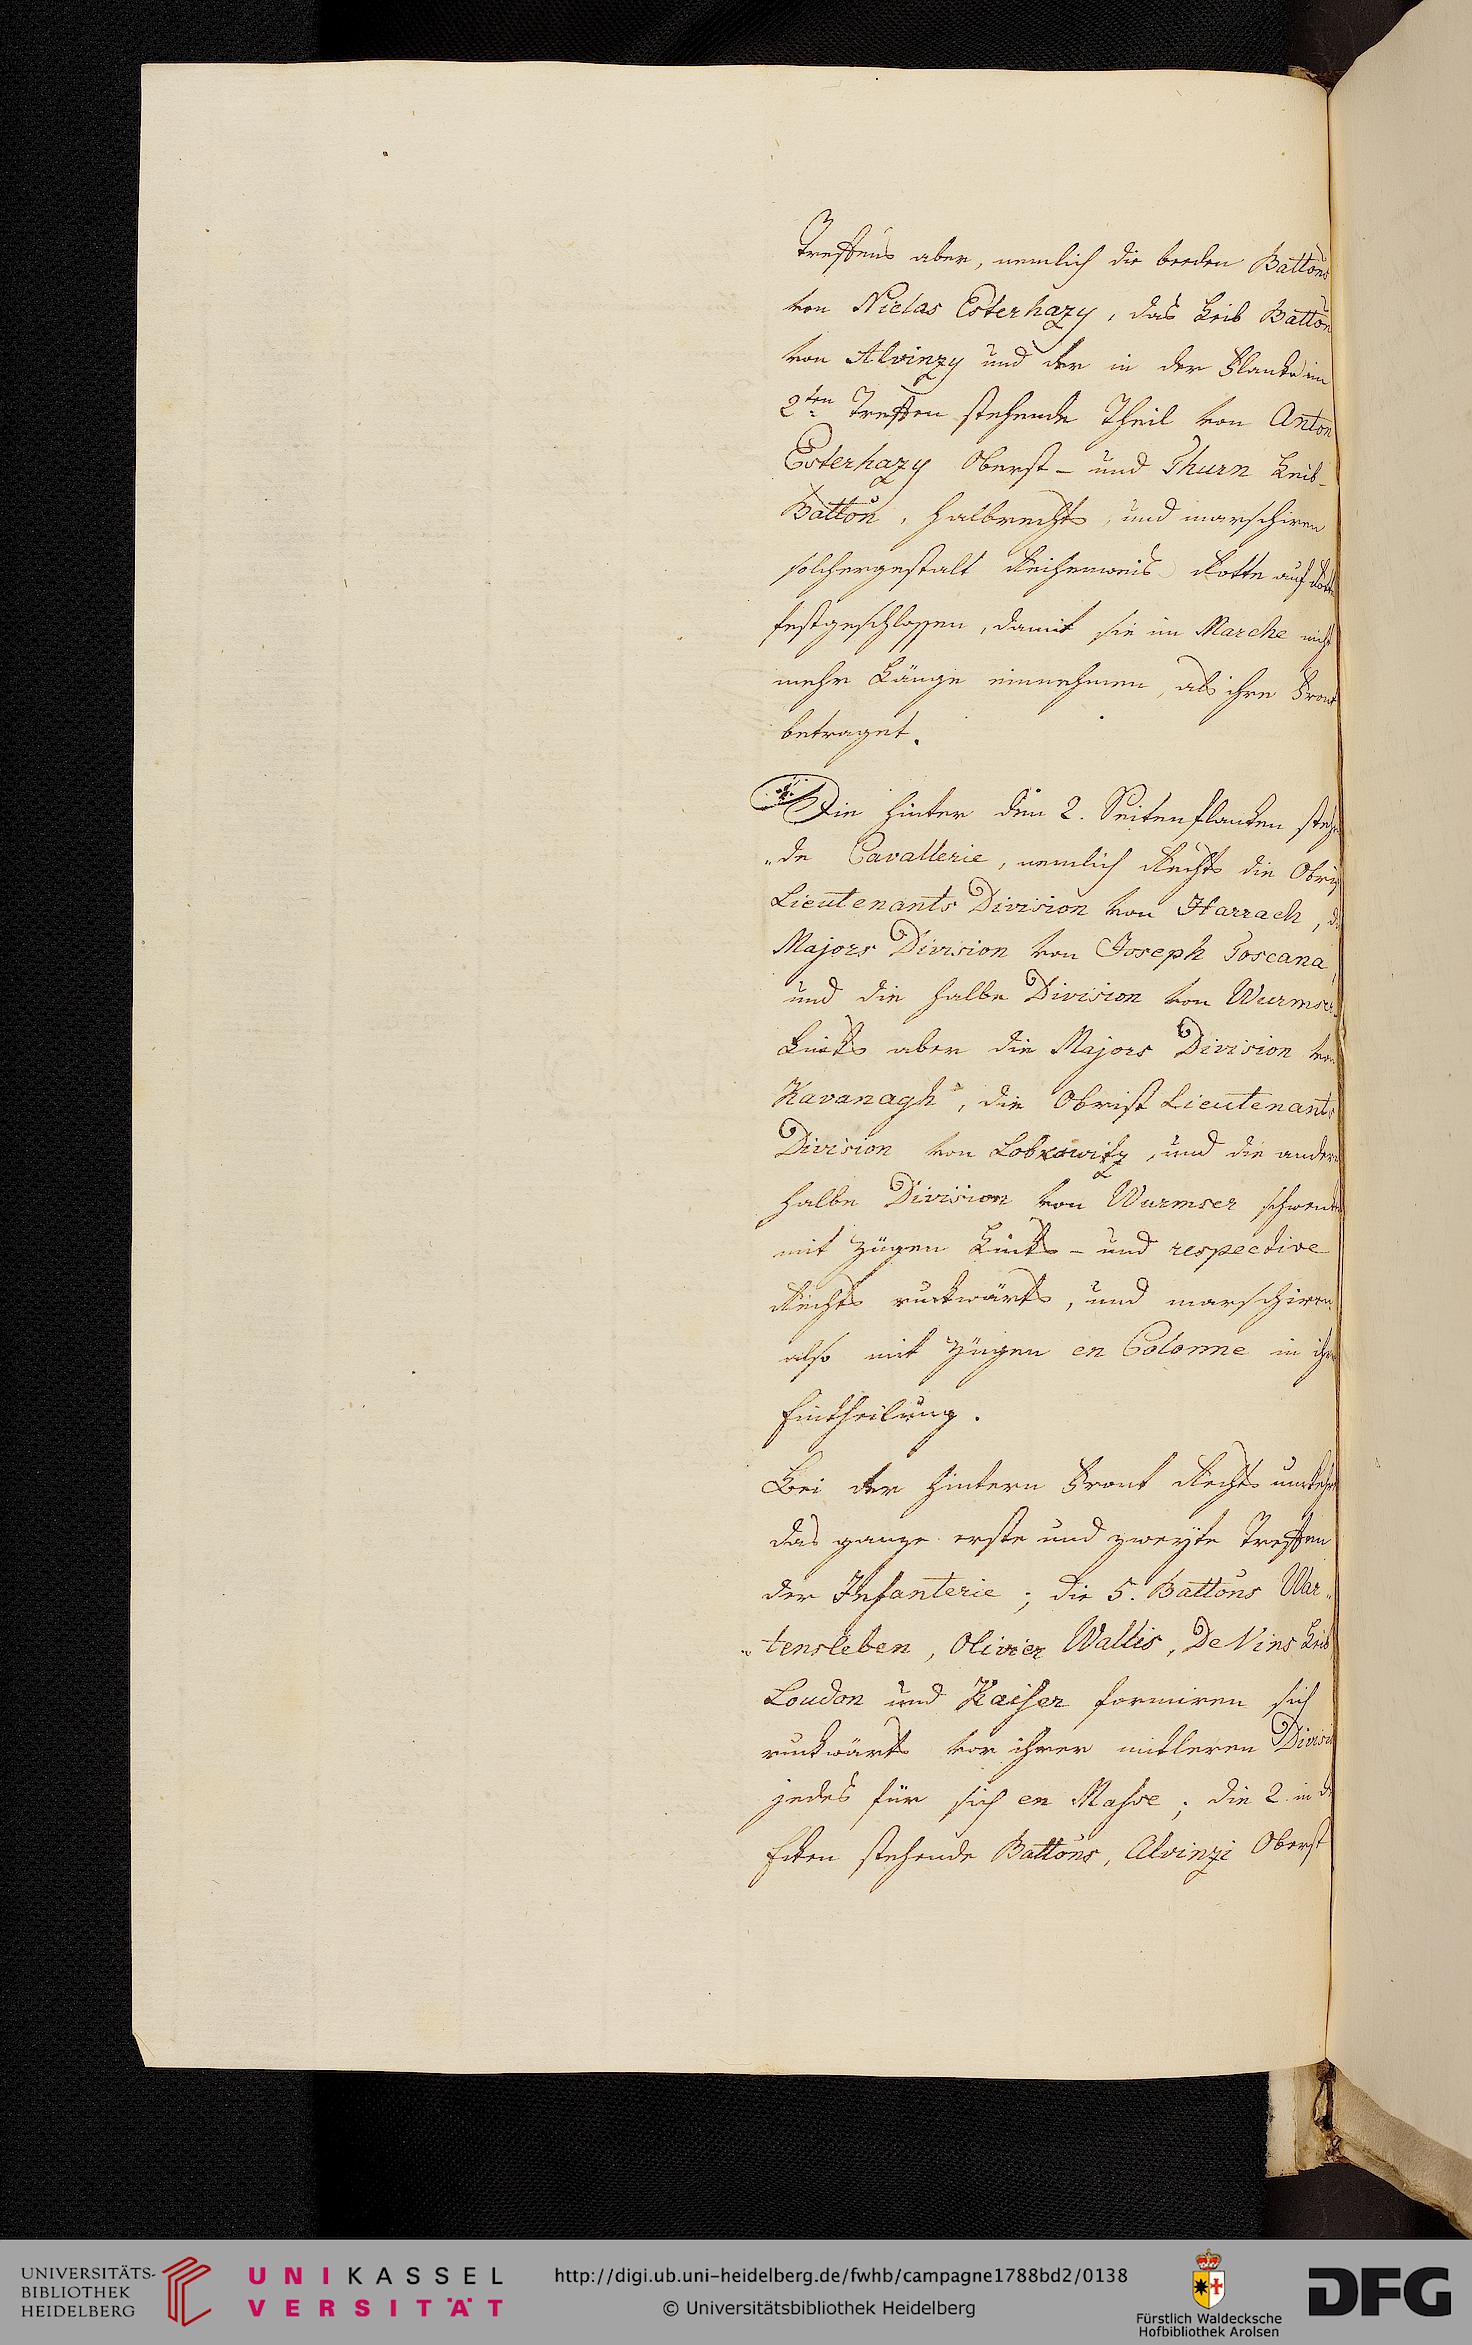 Treffens aber, nemlich die beeden Battons
von Niclas Esterhazy, das Leib Batton
von Alvinzy und der in der Flanke im
2ten Treffen stehende Theil von Anton
Esterhazy Oberst- und Thurn Leib-
Batton, halbrechts, und marschiren
solchergestalt Reihenweis Rotte auf Rotte
festgeschlossen, damit sie im Marche nicht
mehr Länge einnehmen, als ihre Front
betraget.
Die hinter den 2. Seitenflanken stehen
„de Cavallerie, nemlich Rechts die Obrist
Lieutenants Division von Harrach, die
Majors Division von Joseph Toscana,
und die halbe Division von Wurmser.
Links aber die Majors Division von
Kavanagh, die Obrist Lieutenants
Division von Lobkowitz, und die andere
halbe Division von Wurmser schwenken
mit Zügen Links- und respective
Rechts ruckwärts, und marschiren
also mit Zügen en Colonne in ihre
Eintheilung.
Bei der hintern Front Rechts umkehrt
das ganze erste und zweyte Treffen
der Infanterie; die 5. Battons War„
„tensleben, Olivier Wallis, De Vins Leib
Loudon und Kaiser formiren sich
ruckwärts vor ihrer mitleren Division
jedes für sich en Masse; die 2 in den
Ecken stehende Battons, Alvinzi Oberst
UNIVERSITÄTS-
BIBLIOTHEK
HEIDELBERG
UNIKASSEL
VERSITÄT
http://digi.ub.uni-heidelberg.de/fwhb/campagne1788bd2/0138
© Universitätsbibliothek Heidelberg
Fürstlich Waldecksche
Hofbibliothek Arolsen
DFG